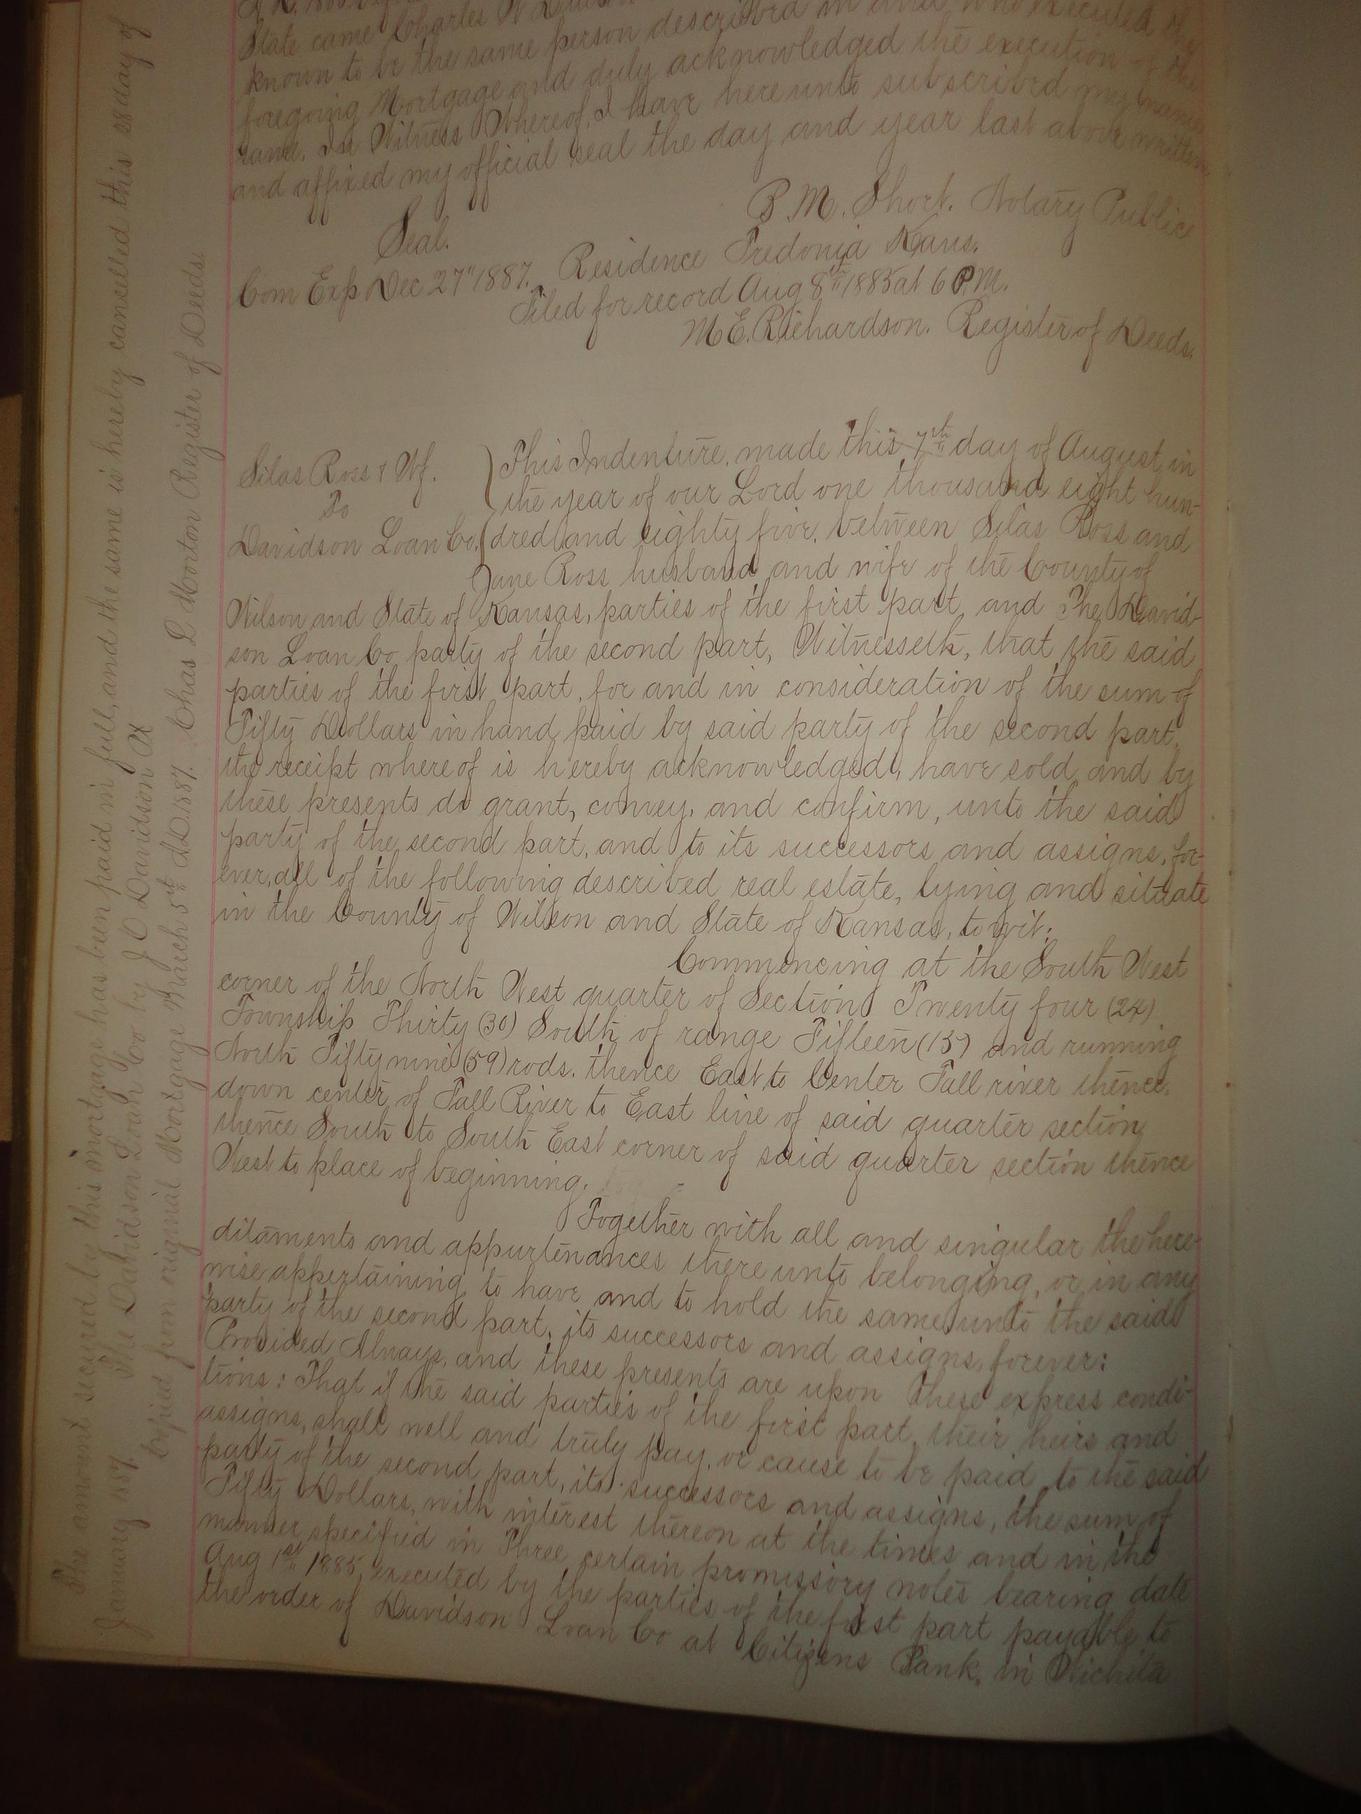 State came Charles N Davidson
known to be the same person described in and who executed the
foregoing Mortgage and duly acknowledged the execution of the
same. In Witness Whereof, I have hereunto subscribed my name
and affixed my official seal the day and year last above written
B. M. Short. Notary Public
Seal.
Residence Fredonia Kans.
Com Exp Dec 27" 1887.
Filed for record Aug 8th 1885 at 6 P.M.
M E. Richardson. Register of Deeds.
Silas Ross & Wf.
To
Davidson Loan Co.
This Indenture, made this 7th day of August, in
the year of our Lord one thousand eight hun-
dred and eighty five, between Silas Ross and
Jane Ross husband and wife of the County of
Wilson and State of Kansas, parties of the first part, and The David-
son Loan Co party of the second part, Witnesseth, that the said
parties of the first part, for and in consideration of the sum of
Fifty Dollars in hand paid by said party of the second part,
the receipt whereof is hereby acknowledged, have sold and by
these presents do grant, convey, and confirm, unto the said
party of the second part, and to its successors and assigns, for-
ever, all of the following described real estate, lying and situate
in the County of Wilson and State of Kansas, to wit:
Commencing at the South West
corner of the North West quarter of Section Twenty four (24)
Township Thirty (30) South of range Fifteen (15) and running
North Fifty nine (59) rods. thence East to Center Fall river thence
down center of Fall River to East line of said quarter section
thence South to South East corner of said quarter section thence
West to place of beginning.
Together with all and singular the here-
ditaments and appurtenances thereunto belonging, or in any
wise appertaining, to have and to hold the same unto the said
party of the second part, its successors and assigns, forever:
Provided Always, and these presents are upon these express condi-
tions: That if the said parties of the first part, their heirs and
assigns, shall well and truly pay, or cause to be paid, to the said
party of the second part, its successors and assigns, the sum of
Fifty Dollars, with interest thereon at the times and in the
manner specified in Three certain promissory notes bearing date
Aug 1st 1885, executed by the parties of the first part payable to
the order of Davidson Loan Co at Citizens Bank, in Wichita
The amount secured by this mortgage has been paid in full, and the same is hereby cancelled this 28 day of
January 1887. The Davidson Loan Co by J O Davidson
Copied from original Mortgage March 5th A.D. 1887. Chas L Morton Register of Deeds.